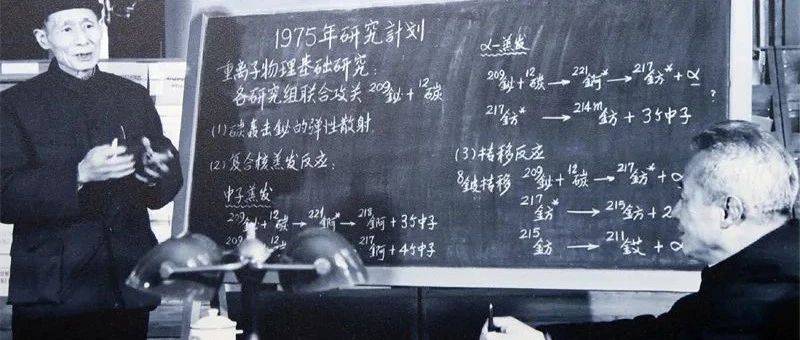 1975年研究計划
重离子物理基础研究:
各研究组联合攻关 ²⁰⁹鉍+¹²碳
(1)碳轰击鉍的弹性散射.
(2)复合核蒸发反应:
中子蒸发
²⁰⁹鉍+¹²碳→²²¹錒*→²¹⁸錒+3个中子
²⁰⁹ ¹²碳 ²¹⁷錒+4个中子
α-蒸发
²⁰⁹鉍+¹²碳→²²¹錒*→²¹⁷鈁*+α
?
²¹⁷鈁*→²¹⁴ᵐ鈁+3个中子
(3)转移反应
⁸鈹转移 ²⁰⁹鉍+¹²碳→²¹⁷鈁*+α
²¹⁷鈁*→²¹⁵鈁+2
²¹⁵鈁→²¹¹+α